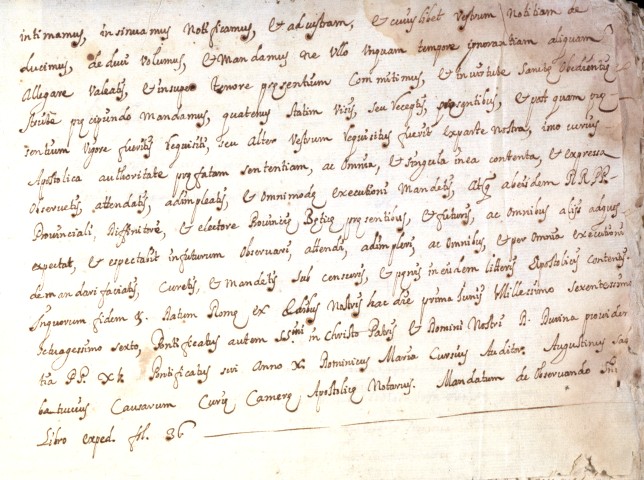 intimamus, insinuamus Notificamus, et ad vestram, et cuius libet Vestrum Notitiam de
ducimus, de duci Volumus, et Mandamus ne Ullo Unquam tempore ignorantiam aliquam
Allegare Valeatis, et insuper tenore presentium Committimus, et in virtute Sanctæ Obedientiæ
precipiendo mandamus, quatenus Statim Visis, seu receptis, presentibus, et post quam pre
sentium Vigore fueritis requisiti, seu Alter Vestrum requisitus fuerit ex parte nostra, imo verius
Apostolica authoritate prefatam sententiam, ac Omnia, et Singula in ea contenta, et expressa
Observetis, attendatis, adimpleatis, et Omnimodæ executioni Mandetis, Atq ab eisdem RR. PP.
Provinciali, Diffinitore, et electore Provinciæ Beticæ presentibus, et futuris, ac Omnibus alijs ad quos
expectat, et espectabit in futurum Observari, attendi, adimpleri, ac Omnibus, et per Omnia executioni
demandari faciatis, Curetis, et Mandetis Sub censuris, et penis in eisdem litteris Apostolicis contentis.
In quorum fidem &. Datum Romæ ex Ædibus Nostris hac die prima Iunij Millessimo Sexentessimo
octuagessimo Sexto, Pontificatus autem SS.mi in Christo Patris et Domini Nostri D. Divina providen
tia PP. XI. Pontificatus sui Anno X. Dominicus Maria Cursius Auditor. Augustinus Sa
batucius Causarum Curiæ Cameræ Apostolicæ Notarius. Mandatum de Observando
Libro exped. fol. 36